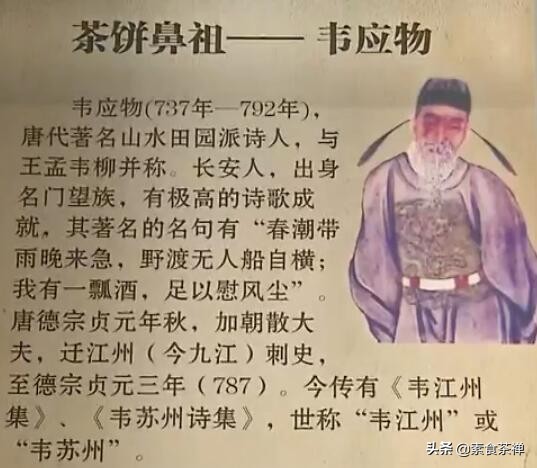 茶饼鼻祖——韦应物
韦应物(737年—792年),
唐代著名山水田园派诗人，与
王孟韦柳并称。长安人，出身
名门望族，有极高的诗歌成
就，其著名的名句有“春潮带
雨晚来急，野渡无人船自横；
我有一瓢酒，足以慰风尘”。
唐德宗贞元年秋，加朝散大
夫，迁江州（今九江）刺史，
至德宗贞元三年（787）。今传有《韦江州
集》、《韦苏州诗集》，世称“韦江州”或
“韦苏州”。
头条 @素食茶禅